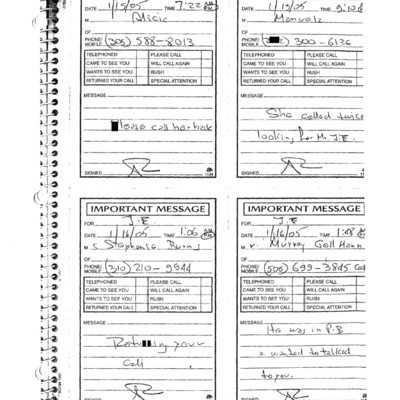 DATE 1/15/05 TIME 7:22
M Alicia
OF
PHONE/
MOBILE (305) 588-8013
TELEPHONED PLEASE CALL
CAME TO SEE YOU WILL CALL AGAIN
WANTS TO SEE YOU RUSH
RETURNED YOUR CALL SPECIAL ATTENTION
MESSAGE
Please call her back
SIGNED
DATE 1/15/05 TIME 9:10 A
M Manuela
OF
PHONE/
MOBILE 300-6126
TELEPHONED PLEASE CALL
CAME TO SEE YOU WILL CALL AGAIN
WANTS TO SEE YOU RUSH
RETURNED YOUR CALL SPECIAL ATTENTION
MESSAGE
She called twice
looking for Mr J.E.
SIGNED
IMPORTANT MESSAGE
FOR J.E
DATE 1/16/05 TIME 1:06
M s Stephanie
OF
PHONE/
MOBILE (310) 210-9944
TELEPHONED PLEASE CALL
CAME TO SEE YOU WILL CALL AGAIN
WANTS TO SEE YOU RUSH
RETURNED YOUR CALL SPECIAL ATTENTION
MESSAGE
Returning your
call.
IMPORTANT MESSAGE
FOR J.E
DATE 1/16/05 TIME 1:48
M r. Murray Gell Mann
OF
PHONE/
MOBILE (505) 699-3845
TELEPHONED PLEASE CALL
CAME TO SEE YOU WILL CALL AGAIN
WANTS TO SEE YOU RUSH
RETURNED YOUR CALL SPECIAL ATTENTION
MESSAGE
He was in P.B
wanted to talked
to you.